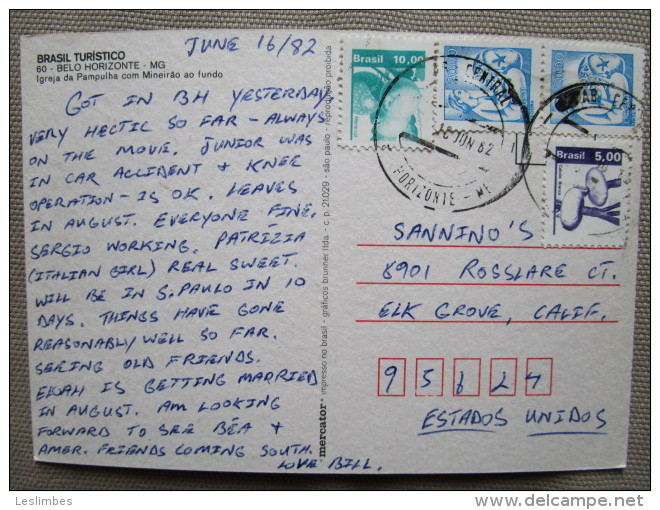 BRASIL TURÍSTICO
60 - BELO HORIZONTE - MG
Igreja da Pampulha com Mineirão ao fundo
JUNE 16/82
GOT IN BH YESTERDAY
VERY HECTIC SO FAR - ALWAYS
ON THE MOVE. JUNIOR WAS
IN CAR ACCIDENT + KNEE
OPERATION - IS OK. LEAVES
IN AUGUST. EVERYONE FINE.
SERGIO WORKING. PATRÍZIA
(ITALIAN GIRL) REAL SWEET.
WILL BE IN S. PAULO IN 10
DAYS. THINGS HAVE GONE
REASONABLY WELL SO FAR.
SEEING OLD FRIENDS.
IS GETTING MARRIED
IN AUGUST. AM LOOKING
FORWARD TO SEE BÉA +
AMER. FRIENDS COMING SOUTH.
LOVE BILL.
mercator® impresso no brasil - gráficos brunner ltda. - c. p. 21029 - são paulo - reprodução proibida
Brasil 10,00
Brasil 5,00
CENTRAL
JUN 82
HORIZONTE - MG
SANNINO'S
8901 ROSSLARE CT.
ELK GROVE, CALIF.
95624
ESTADOS UNIDOS
Leslimbes
delcampe.net